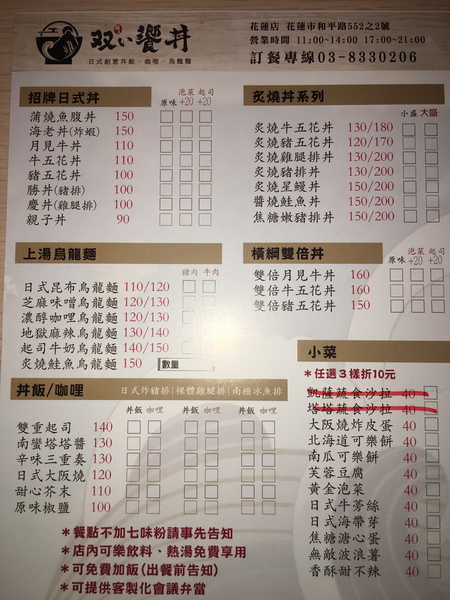 双い饗丼
日式創意丼飯、咖哩、烏龍麵
花蓮店 花蓮市和平路552之2號
營業時間 11:00~14:00 17:00~21:00
訂餐專線03-8330206
招牌日式丼
原味 泡菜+20 起司+20
蒲燒魚腹丼 150
海老丼(炸蝦) 150
月見牛丼 110
牛五花丼 110
豬五花丼 100
勝丼(豬排) 100
慶丼(雞腿排) 100
親子丼 90
炙燒丼系列
小盛 大盛
炙燒牛五花丼 130/180
炙燒豬五花丼 120/170
炙燒雞腿排丼 130/200
炙燒豬排丼 130/200
炙燒星鰻丼 150/200
醬燒鮭魚丼 150/200
焦糖嫩豬排丼 150/200
上湯烏龍麵
豬肉 牛肉
日式昆布烏龍麵 110/120
芝麻味噌烏龍麵 120/130
濃醇咖哩烏龍麵 120/130
地獄麻辣烏龍麵 130/140
起司牛奶烏龍麵 140/150
炙燒鮭魚烏龍麵 150
數量
橫綱雙倍丼
原味 泡菜+20 起司+20
雙倍月見牛丼 160
雙倍牛五花丼 160
雙倍豬五花丼 150
丼飯/咖哩
日式炸豬排|裸體雞腿排|南極冰魚排
丼飯 咖哩 丼飯 咖哩 丼飯 咖哩
雙重起司 140
南蠻塔塔醬 130
辛味三重奏 130
日式大阪燒 120
甜心芥末 110
原味椒鹽 100
小菜
*任選3樣折10元
凱薩蔬食沙拉 40
塔塔蔬食沙拉 40
大阪燒炸皮蛋 40
北海道可樂餅 40
南瓜可樂餅 40
芙蓉豆腐 40
黃金泡菜 40
日式牛蒡絲 40
日式海帶芽 40
焦糖溏心蛋 40
無敵波浪薯 40
香酥甜不辣 40
*餐點不加七味粉請事先告知
*店內可樂飲料、熱湯免費享用
*可免費加飯(出餐前告知)
*可提供客製化會議弁當